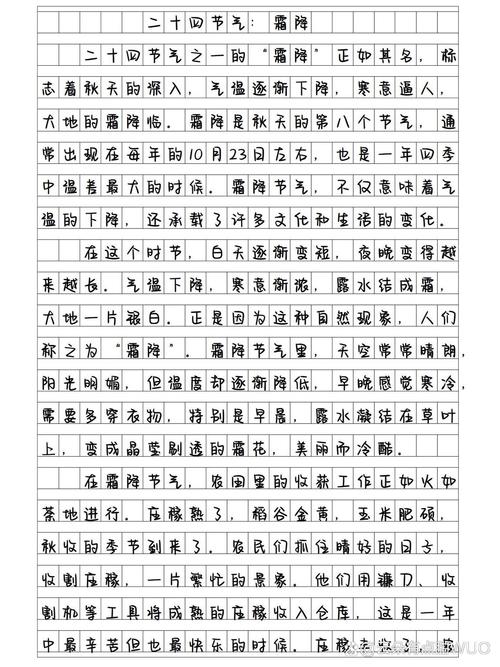 二十四节气：霜降
二十四节气之一的“霜降”正如其名，标
志着秋天的深入，气温逐渐下降，寒意逼人，
大地的霜降临。霜降是秋天的第八个节气，通
常出现在每年的10月23日左右，也是一年四季
中温差最大的时候。霜降节气，不仅意味着气
温的下降，还承载了许多文化和生活的变化。
在这个时节，白天逐渐变短，夜晚变得越
来越长。气温下降，寒意渐浓，露水结成霜，
大地一片银白。正是因为这种自然现象，人们
称之为“霜降”。霜降节气里，天空常常晴朗，
阳光明媚，但温度却逐渐降低，早晚感觉寒冷，
需要多穿衣物，特别是早晨，露水凝结在草叶
上，变成晶莹剔透的霜花，美丽而冷酷。
在霜降节气，农田里的收获工作正如火如
荼地进行。庄稼熟了，稻谷金黄，玉米肥硕，
秋收的季节到来了。农民们抓住晴好的日子，
收割庄稼，一片繁忙的景象。他们用镰刀、收
割机等工具将成熟的庄稼收入仓库，这是一年
中最辛苦但也最快乐的时候。庄稼